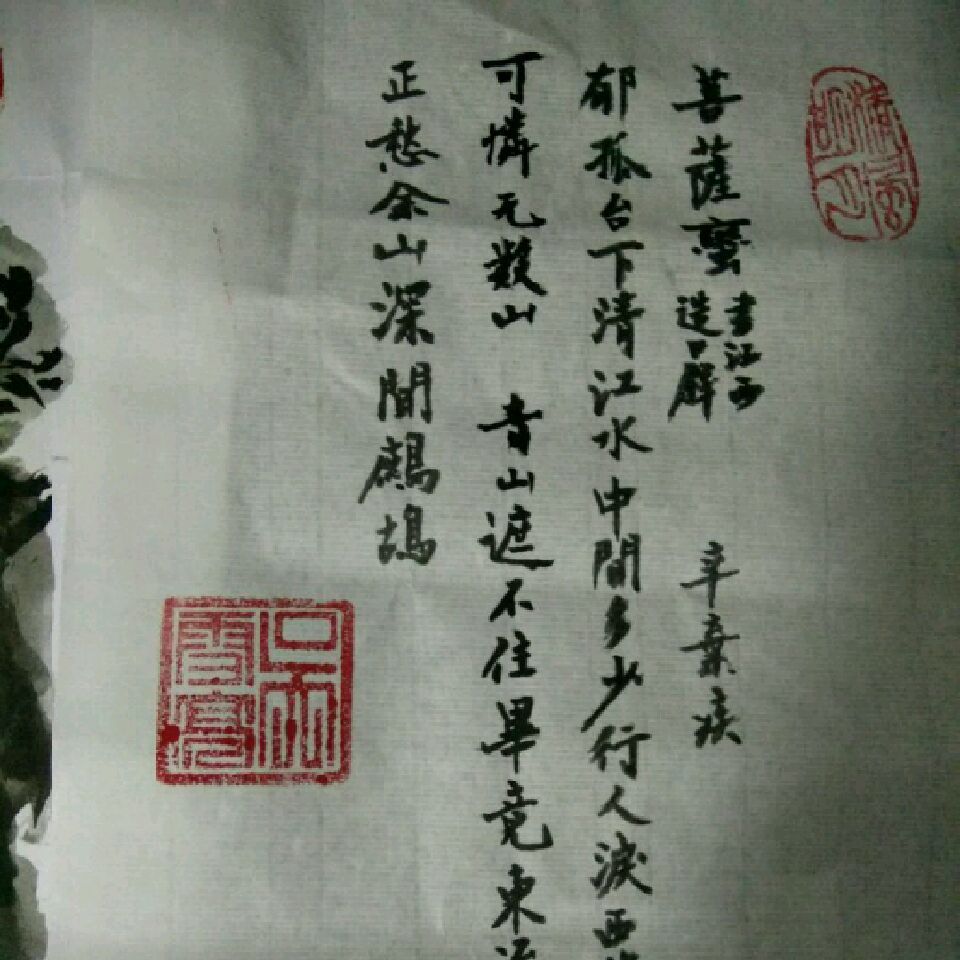 菩薩蠻 書江西造口壁 辛棄疾
郁孤台下清江水中間多少行人淚西
可憐无数山 青山遮不住畢竟東
正愁余山深聞鹧鸪